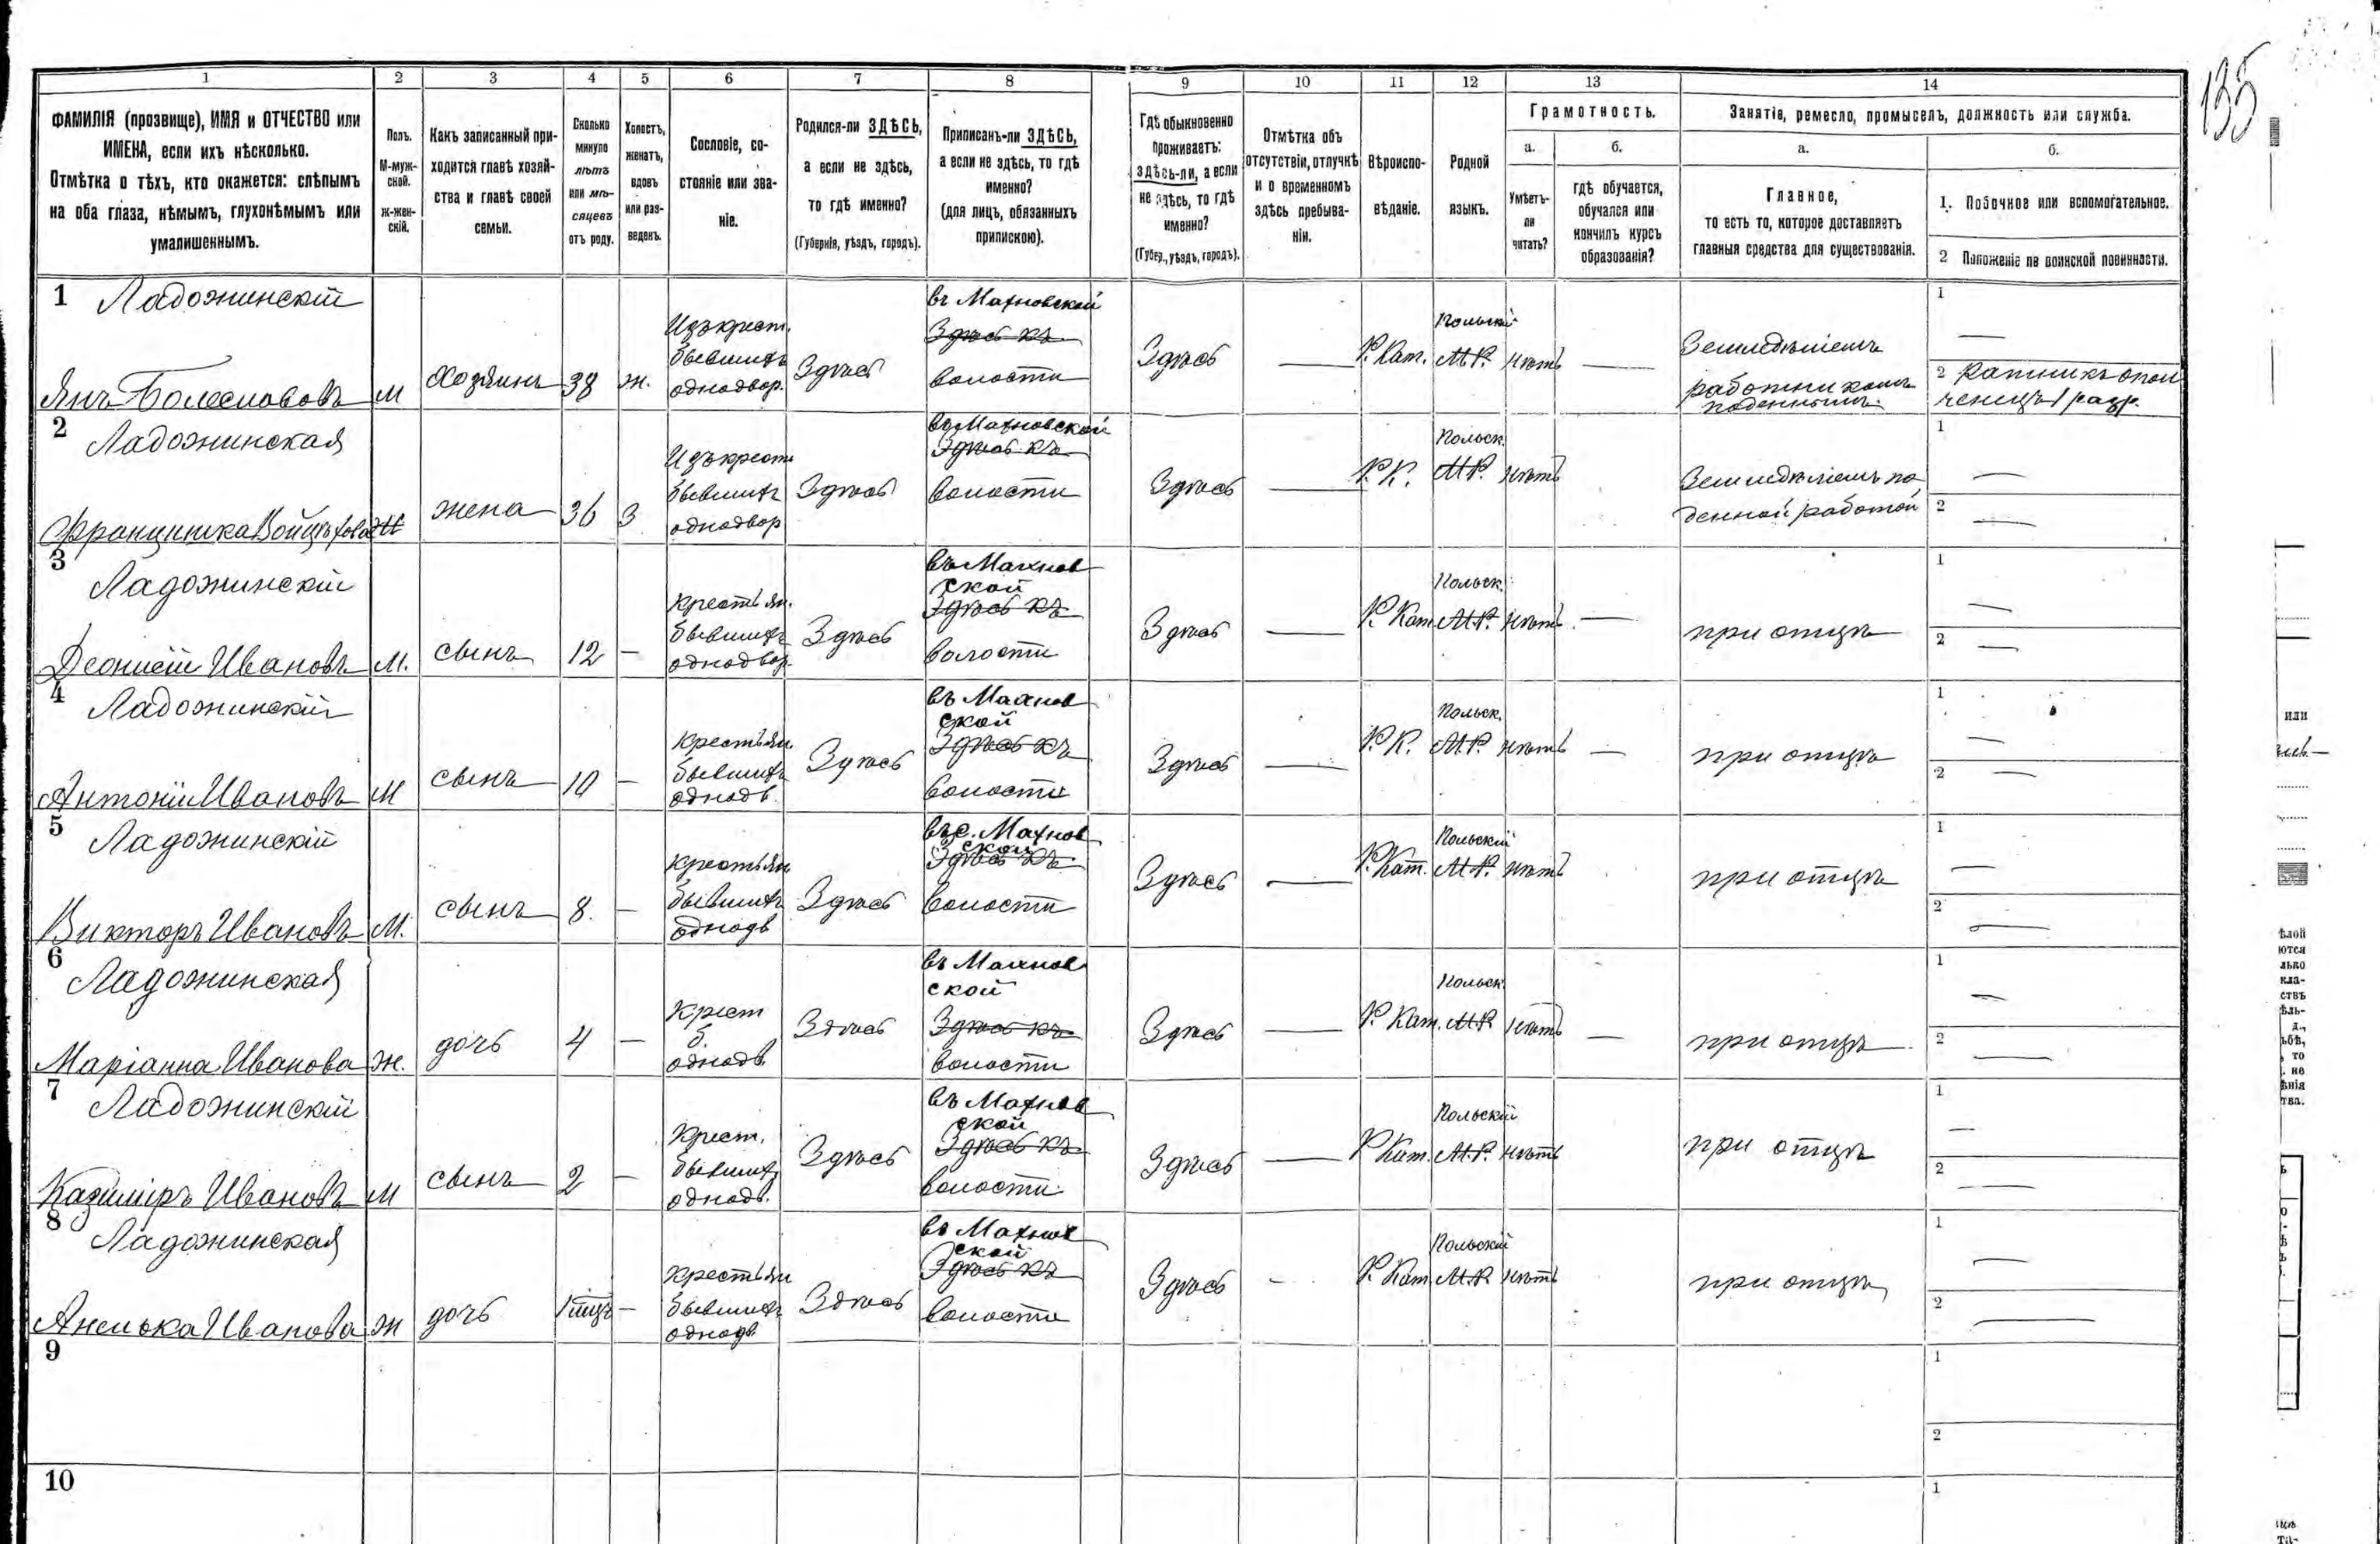 135
1 2 3 4 5 6 7 8 9 10 11 12 13 14
ФАМИЛІЯ (прозвище), ИМЯ и ОТЧЕСТВО или
ИМЕНА, если ихъ нѣсколько.
Отмѣтка о тѣхъ, кто окажется: слѣпымъ
на оба глаза, нѣмымъ, глухонѣмымъ или
умалишеннымъ.
Полъ.
М-муж-
ской.
ж-жен-
скій.
Какъ записанный при-
ходится главѣ хозяй-
ства и главѣ своей
семьи.
Сколько
минуло
лѣтъ
или мѣ-
сяцевъ
отъ роду.
Холостъ,
женатъ,
вдовъ
или раз-
веденъ.
Сословіе, со-
стояніе или зва-
ніе.
Родился-ли ЗДѢСЬ,
а если не здѣсь,
то гдѣ именно?
(Губернія, уѣздъ, городъ).
Приписанъ-ли ЗДѢСЬ,
а если не здѣсь, то гдѣ
именно?
(для лицъ, обязанныхъ
припискою).
Гдѣ обыкновенно
проживаетъ:
здѣсь-ли, а если
не здѣсь, то гдѣ
именно?
(Губер., уѣздъ, городъ).
Отмѣтка объ
отсутствіи, отлучкѣ
и о временномъ
здѣсь пребыва-
ніи.
Вѣроиспо-
вѣданіе.
Родной
языкъ.
Грамотность.
а.
Умѣетъ-
ли
читать?
б.
гдѣ обучается,
обучался или
кончилъ курсъ
образованія?
Занятіе, ремесло, промыселъ, должность или служба.
а.
Главное,
то есть то, которое доставляетъ
главныя средства для существованія.
б.
1. Побочное или вспомогательное.
2 Положеніе по воинской повинности.
1 Ладожинскій
Янъ Болеславовъ
м
хозяинъ
38
ж.
Изъ крест.
бывшихъ
однодвор.
Здѣсь
въ Махновской
Здѣсь къ
волости
Здѣсь
—
Р. Кат.
Польскій
М.Р.
нѣтъ
—
Земледѣліемъ
работникомъ
поденнымъ.
1
—
2 Ратникъ опол
ченія 1 разр.
2 Ладожинская
Францишка Войцѣхова
ж
жена
36
З
Изъ крест
бывшихъ
однодвор
Здѣсь
въ Махновской
Здѣсь къ
волости
Здѣсь
—
Р.К.
Польск.
М.Р.
нѣтъ
Земледѣліемъ по
денной работой
1
—
2
—
3 Ладожинскій
Деонисій Ивановъ
М.
сынъ
12
—
крестьян.
бывшихъ
однодвор.
Здѣсь
въ Махнов
ской
Здѣсь къ
волости
Здѣсь
—
Р. Кат
Польск.
М.Р.
нѣтъ
—
при отцѣ
1
—
2
—
4 Ладожинскій
Антоній Ивановъ
М
сынъ
10
—
крестьян.
бывшихъ
однодв.
Здѣсь
въ Махнов
ской
Здѣсь къ
волости
Здѣсь
—
Р.К.
Польск.
М.Р.
нѣтъ
—
при отцѣ
1
—
2
—
5 Ладожинскій
Викторъ Ивановъ
М.
сынъ
8.
—
крестьян
бывшихъ
однодв
Здѣсь
въ с. Махнов
ской
Здѣсь къ
волости
Здѣсь
—
Р. Кат.
Польскій
М.Р.
нѣтъ
при отцѣ
1
—
2
—
6 Ладожинская
Маріанна Иванова
ж.
дочь
4
—
Крест
б.
однодв.
Здѣсь
въ Махнов
ской
Здѣсь къ
волости
Здѣсь
—
Р. Кат.
Польск.
М.Р.
нѣтъ
—
при отцѣ
1
—
2
—
7 Ладожинскій
Казиміръ Ивановъ
М
сынъ
2
—
Крест.
бывших
однодв.
Здѣсь
въ Махнов
ской
Здѣсь къ
волости
Здѣсь
—
Р. Кат.
Польскій
М.Р.
нѣтъ
при отцѣ
1
—
2
—
8 Ладожинская
Анелька Иванова
ж
дочь
—
крестьян
бывшихъ
однодв
Здѣсь
въ Махнов
ской
Здѣсь къ
волости
Здѣсь
-
Р. Кат
Польскій
М.Р.
нѣтъ
при отцѣ
1
—
2
—
9
1
2
10
1
или
ѣлой
ются
лько
кла-
ствъ
ѣль-
д.,
ьбѣ,
, то
. не
ѣнія
тва.